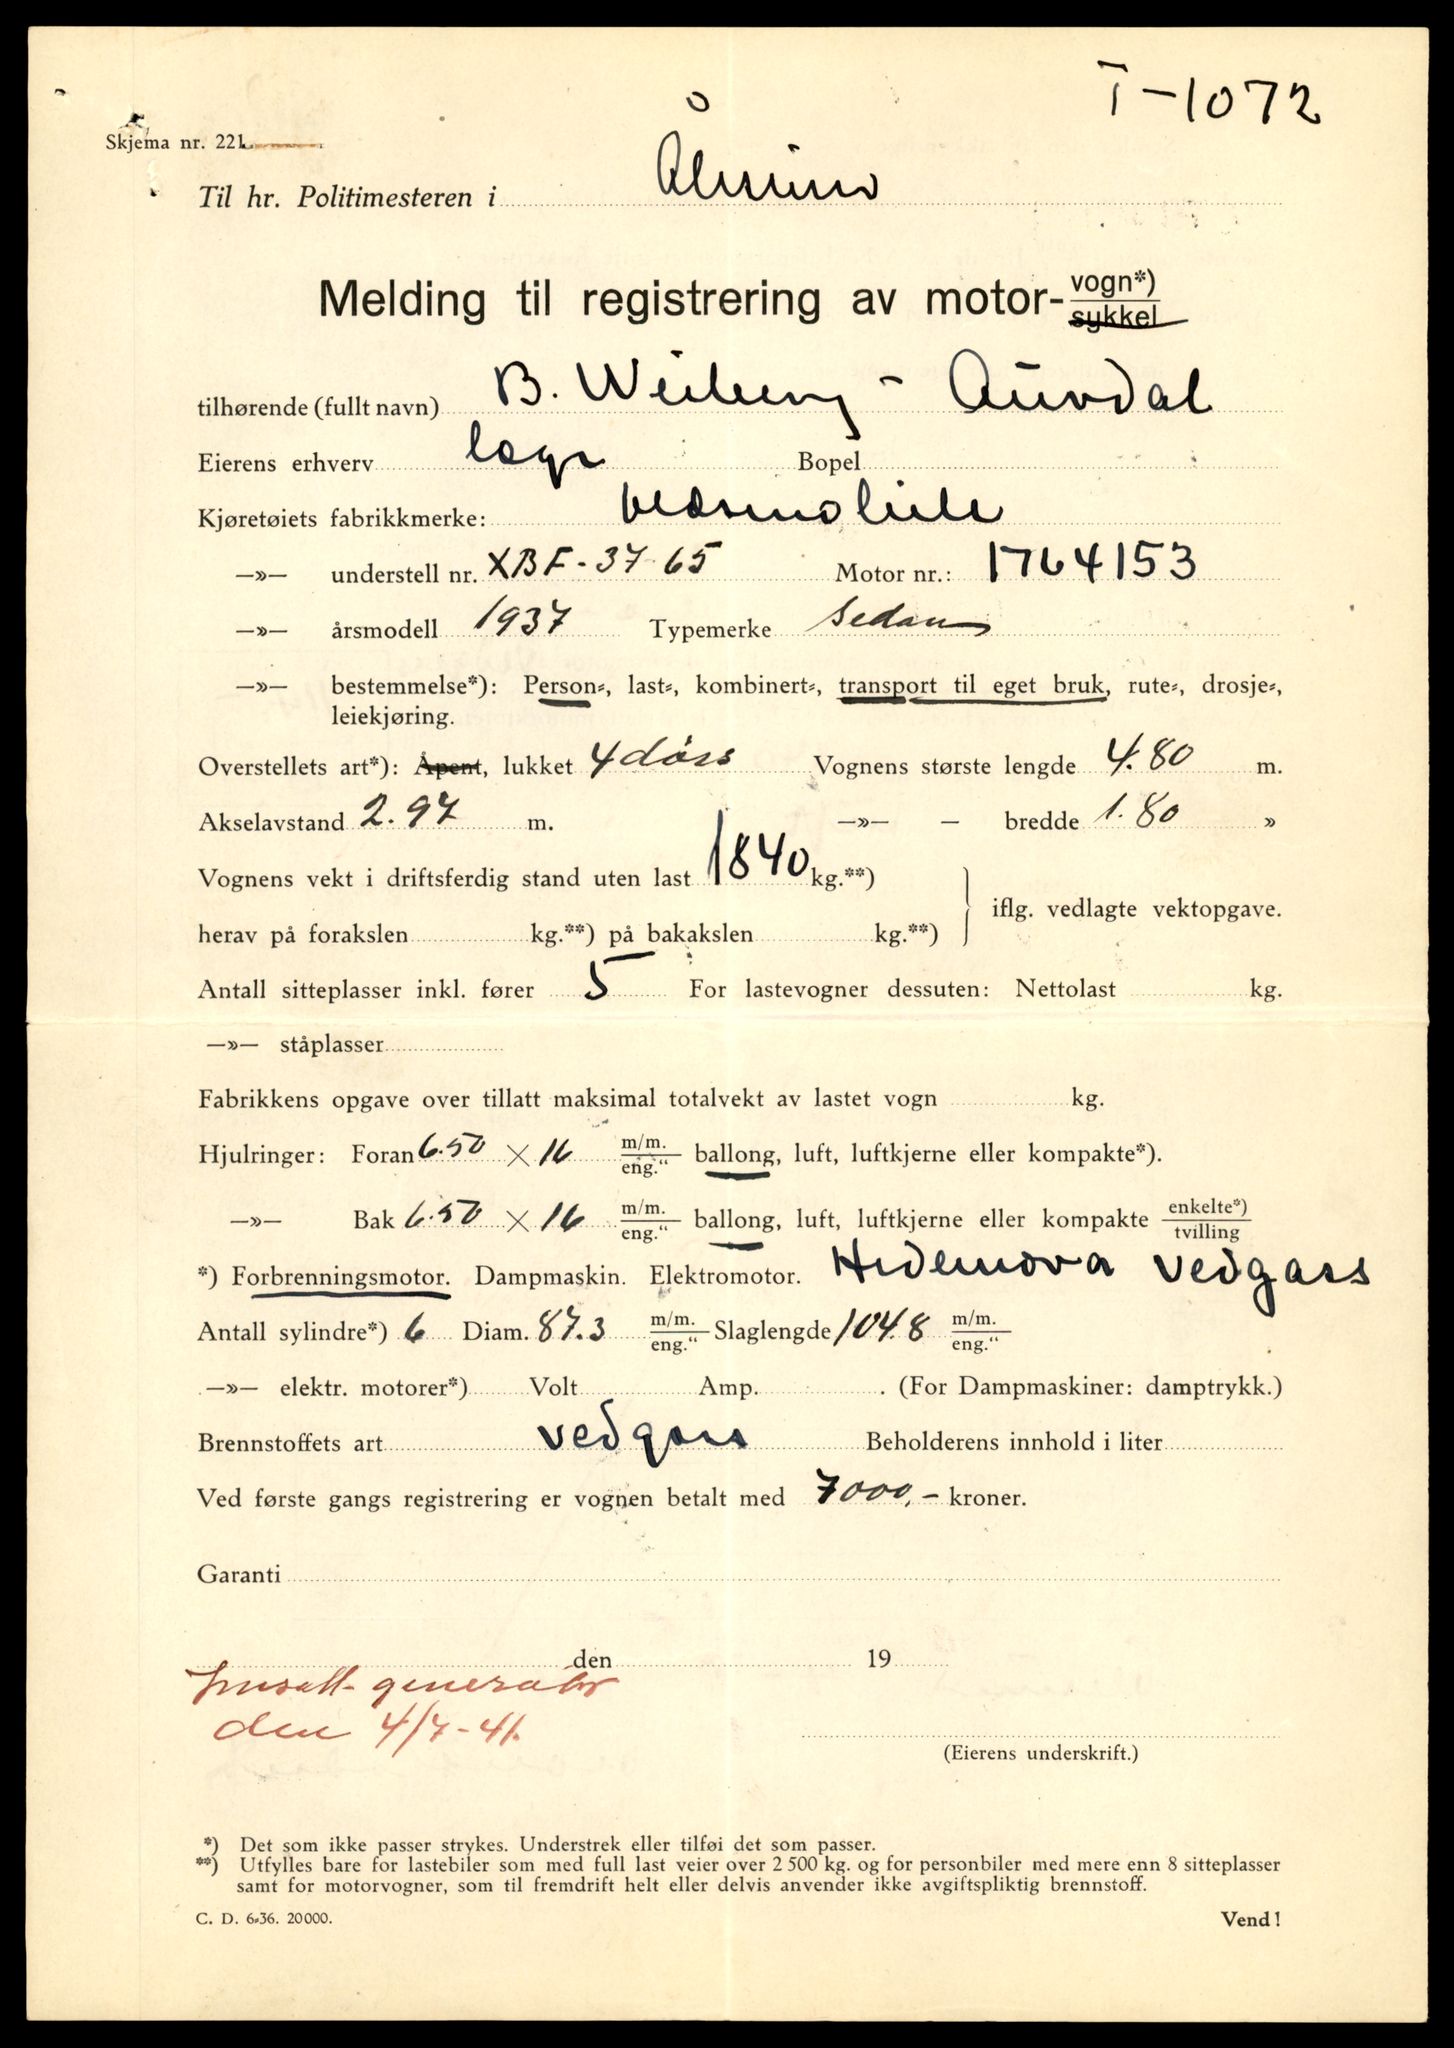 T-1072
Skjema nr. 221
Til hr. Politimesteren i Ålesund
Melding til registrering av motor- vogn*)
sykkel
tilhørende (fullt navn) B. Weiberg - Aurdal
Eierens erhverv læge Bopel
Kjøretøiets fabrikkmerke: Oldsmobile
—»— understell nr. XBF-37-65 Motor nr.: 1764153
—»— årsmodell 1937 Typemerke Sedan
—»— bestemmelse*): Person-, last-, kombinert-, transport til eget bruk, rute-, drosje-,
leiekjøring.
Overstellets art*): Åpent, lukket 4 dørs Vognens største lengde 4.80 m.
Akselavstand 2.97 m. —»— — bredde 1.80 »
Vognens vekt i driftsferdig stand uten last 1840 kg.**)
iflg. vedlagte vektopgave.
herav på forakslen kg.**) på bakakslen kg.**)
Antall sitteplasser inkl. fører 5 For lastevogner dessuten: Nettolast kg.
—»— ståplasser
Fabrikkens opgave over tillatt maksimal totalvekt av lastet vogn kg.
Hjulringer: Foran 6.50 × 16 m/m. eng.“ ballong, luft, luftkjerne eller kompakte*).
—»— Bak 6.50 × 16 m/m. eng.“ ballong, luft, luftkjerne eller kompakte enkelte*) tvilling
*) Forbrenningsmotor. Dampmaskin. Elektromotor. Hedemora vedgass
Antall sylindre*) 6 Diam. 87.3 m/m. eng.“ Slaglengde 104.8 m/m. eng.“
—»— elektr. motorer*) Volt Amp. . (For Dampmaskiner: damptrykk.)
Brennstoffets art vedgass Beholderens innhold i liter
Ved første gangs registrering er vognen betalt med 7000,- kroner.
Garanti
den 19
Innsatt generator
den 4/7-41.
(Eierens underskrift.)
*) Det som ikke passer strykes. Understrek eller tilføi det som passer.
**) Utfylles bare for lastebiler som med full last veier over 2 500 kg. og for personbiler med mere enn 8 sitteplasser
samt for motorvogner, som til fremdrift helt eller delvis anvender ikke avgiftspliktig brennstoff.
C. D. 6-36. 20000. Vend!